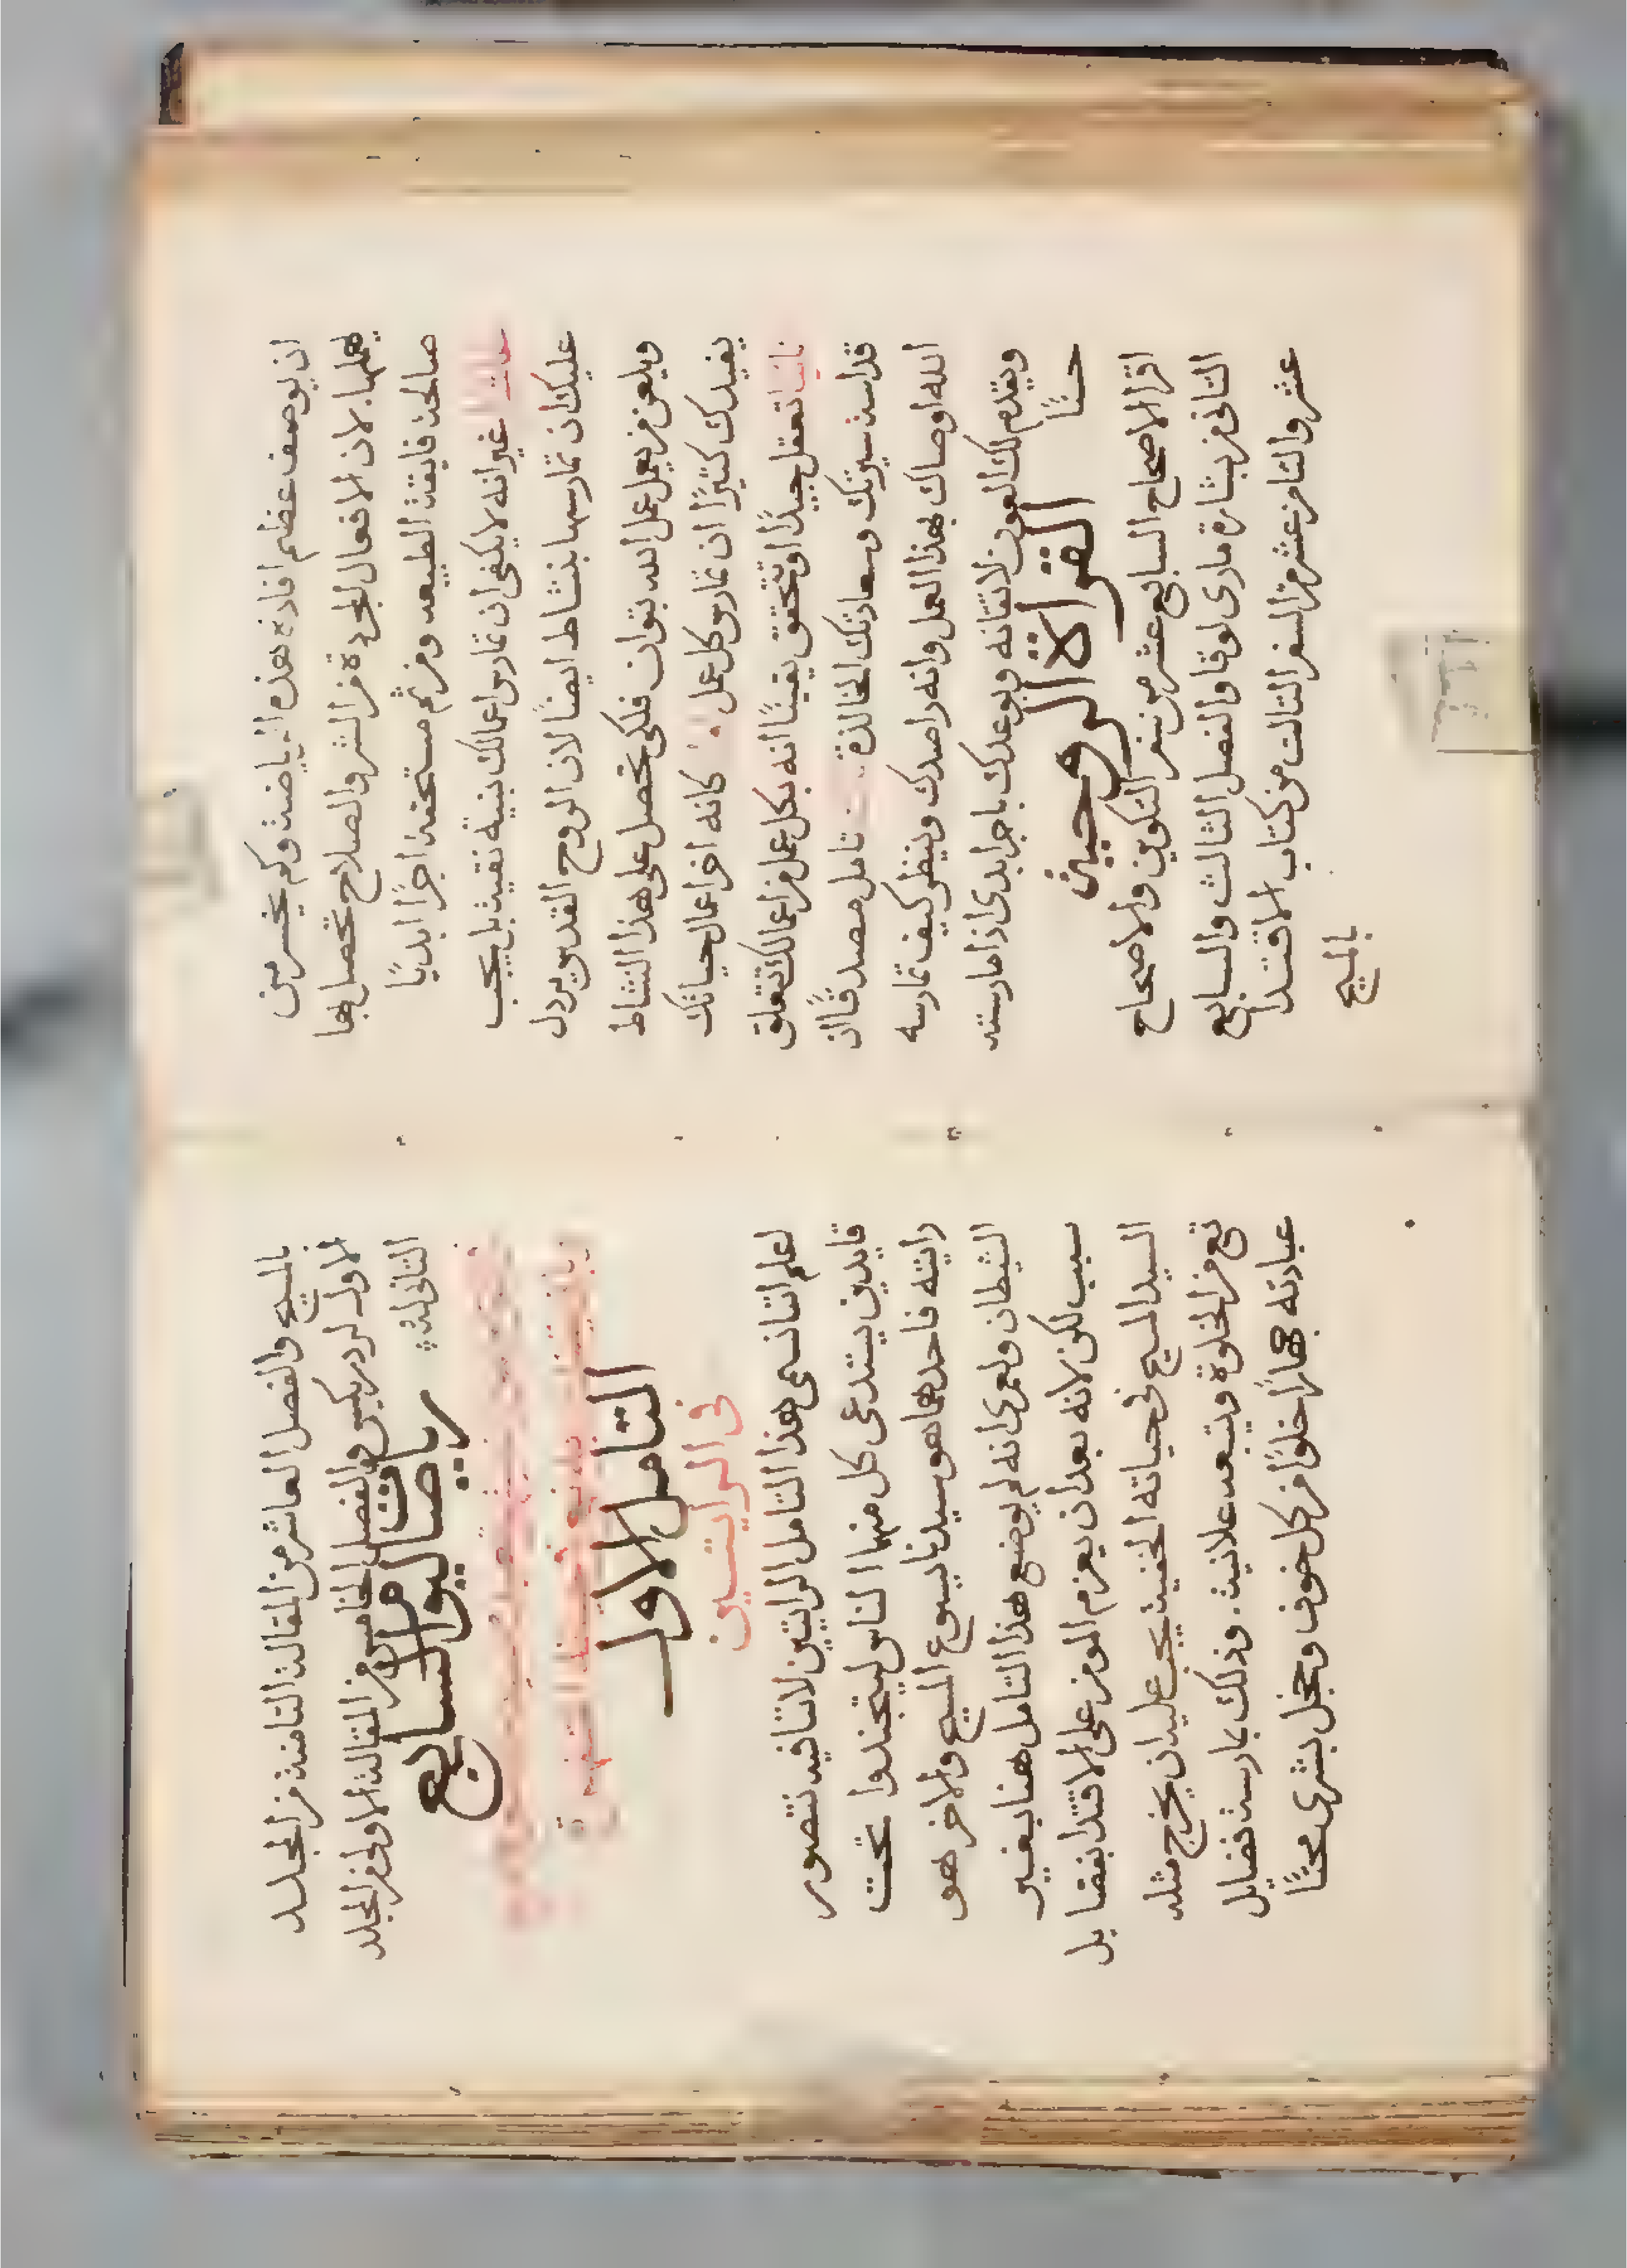 ان يوصف عظم افادة هذه الرياضة وكم يخسر من
يهملها. لان الافعال المجردة من الشر والصلاح تحصل بها
صالحة فايقة الطبيعه ومن ثم مستحقه اجرًا ابديًا
غير انه لا يكفى ان تمارس اعمالك بنية نقية بل يجب
عليك ان تمارسها بنشاط ايضًا لان الروح القدس يردل
ويلعن من يعمل عمل الله بتوان فلكى تحصل على هذا النشاط
يفيدك كثيرًا ان تمارس كل عمل كانه اخر اعمال حياتك
تعقل جيدًا او تحقق يقينًا انه بكل عمل من اعمالك تتعلق
قداسة سيرتك وسعادتك الخالدة تامل مصدقًا ان
الله اوصاك بهذا العمل وانه راصدك وينظر كيف تمارسه
ويقدم لك العون لاتقانه ويوعدك باجر ابدى اذا مارسته
حسنًا
القراة الروحية
اقرا الاصحاح السابع عشر من سفر التكوين والاصحاح
الثانى من بشارة مارى لوقا والفصل الثالث والسابع
عشر والثامن عشر من السفر الثالث من كتاب الاقتدا
بالمسيح
بالمسيح والفصل العاشر من المقالة الثامنة من المجلد
الاول لردريكيس والفصل الخامس من المقالة الاولى من المجلد
الثانى له
رياضات اليوم السابع
التامل الاول
فى الرايتين
لعلم اننا نسمى هذا التامل الرايتين لاننا فيه نتصور
قايدين يستدعى كل منهما الناس ليتجندوا تحت
رايته فاحدهما هو سيدنا يسوع المسيح والاخر هو
الشيطان ولعمرى انه لم يوضع هذا التامل هنا بغير
سبب لكن لانه بعد ان يعزم المومن على الاقتدا بفضايل
السيد المسيح فى حياته الخفية يجب عليه ان يخرج مثله
من الخلوة ويتبعه علانية. وذلك بمارسة فضايل
عبادته جهارًا خلوًا من كل خوف وخجل بشرى محتًا